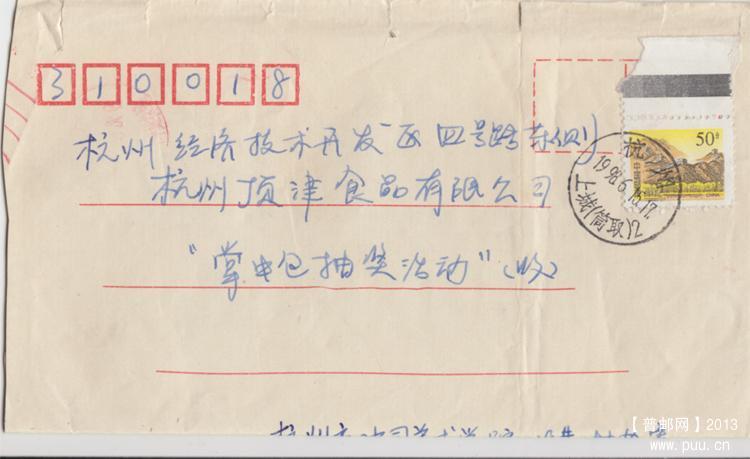 310018
50分
杭州经济技术开发区四号路东侧
杭州顶津食品有限公司
"掌中包抽奖活动"(收)
杭州
1998.6.16.17
下城(筒取)2
CHINA
【普邮网】2013
www.puu.cn